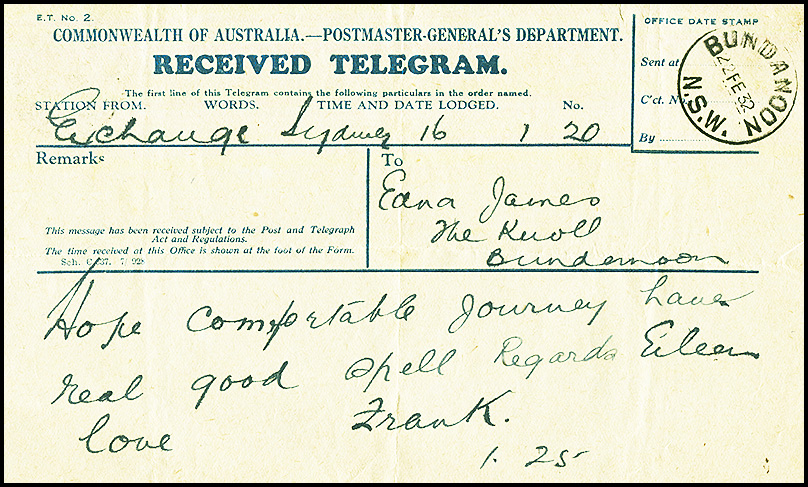 E.T. No. 2.
COMMONWEALTH OF AUSTRALIA.—POSTMASTER-GENERAL'S DEPARTMENT.
RECEIVED TELEGRAM.
The first line of this Telegram contains the following particulars in the order named.
STATION FROM. WORDS. TIME AND DATE LODGED. No.
Exchange Sydney 16 1 20
OFFICE DATE STAMP
Sent at
C'ct. N
By
BUNDANOON
22 FE 32
N.S.W.
Remarks
This message has been received subject to the Post and Telegraph
Act and Regulations.
The time received at this Office is shown at the foot of the Form.
Sch.
To
Edna James
The Knoll
Bundernoon
Hope comfortable Journey have
real good spell Regards Eileen
love Frank.
1. 25